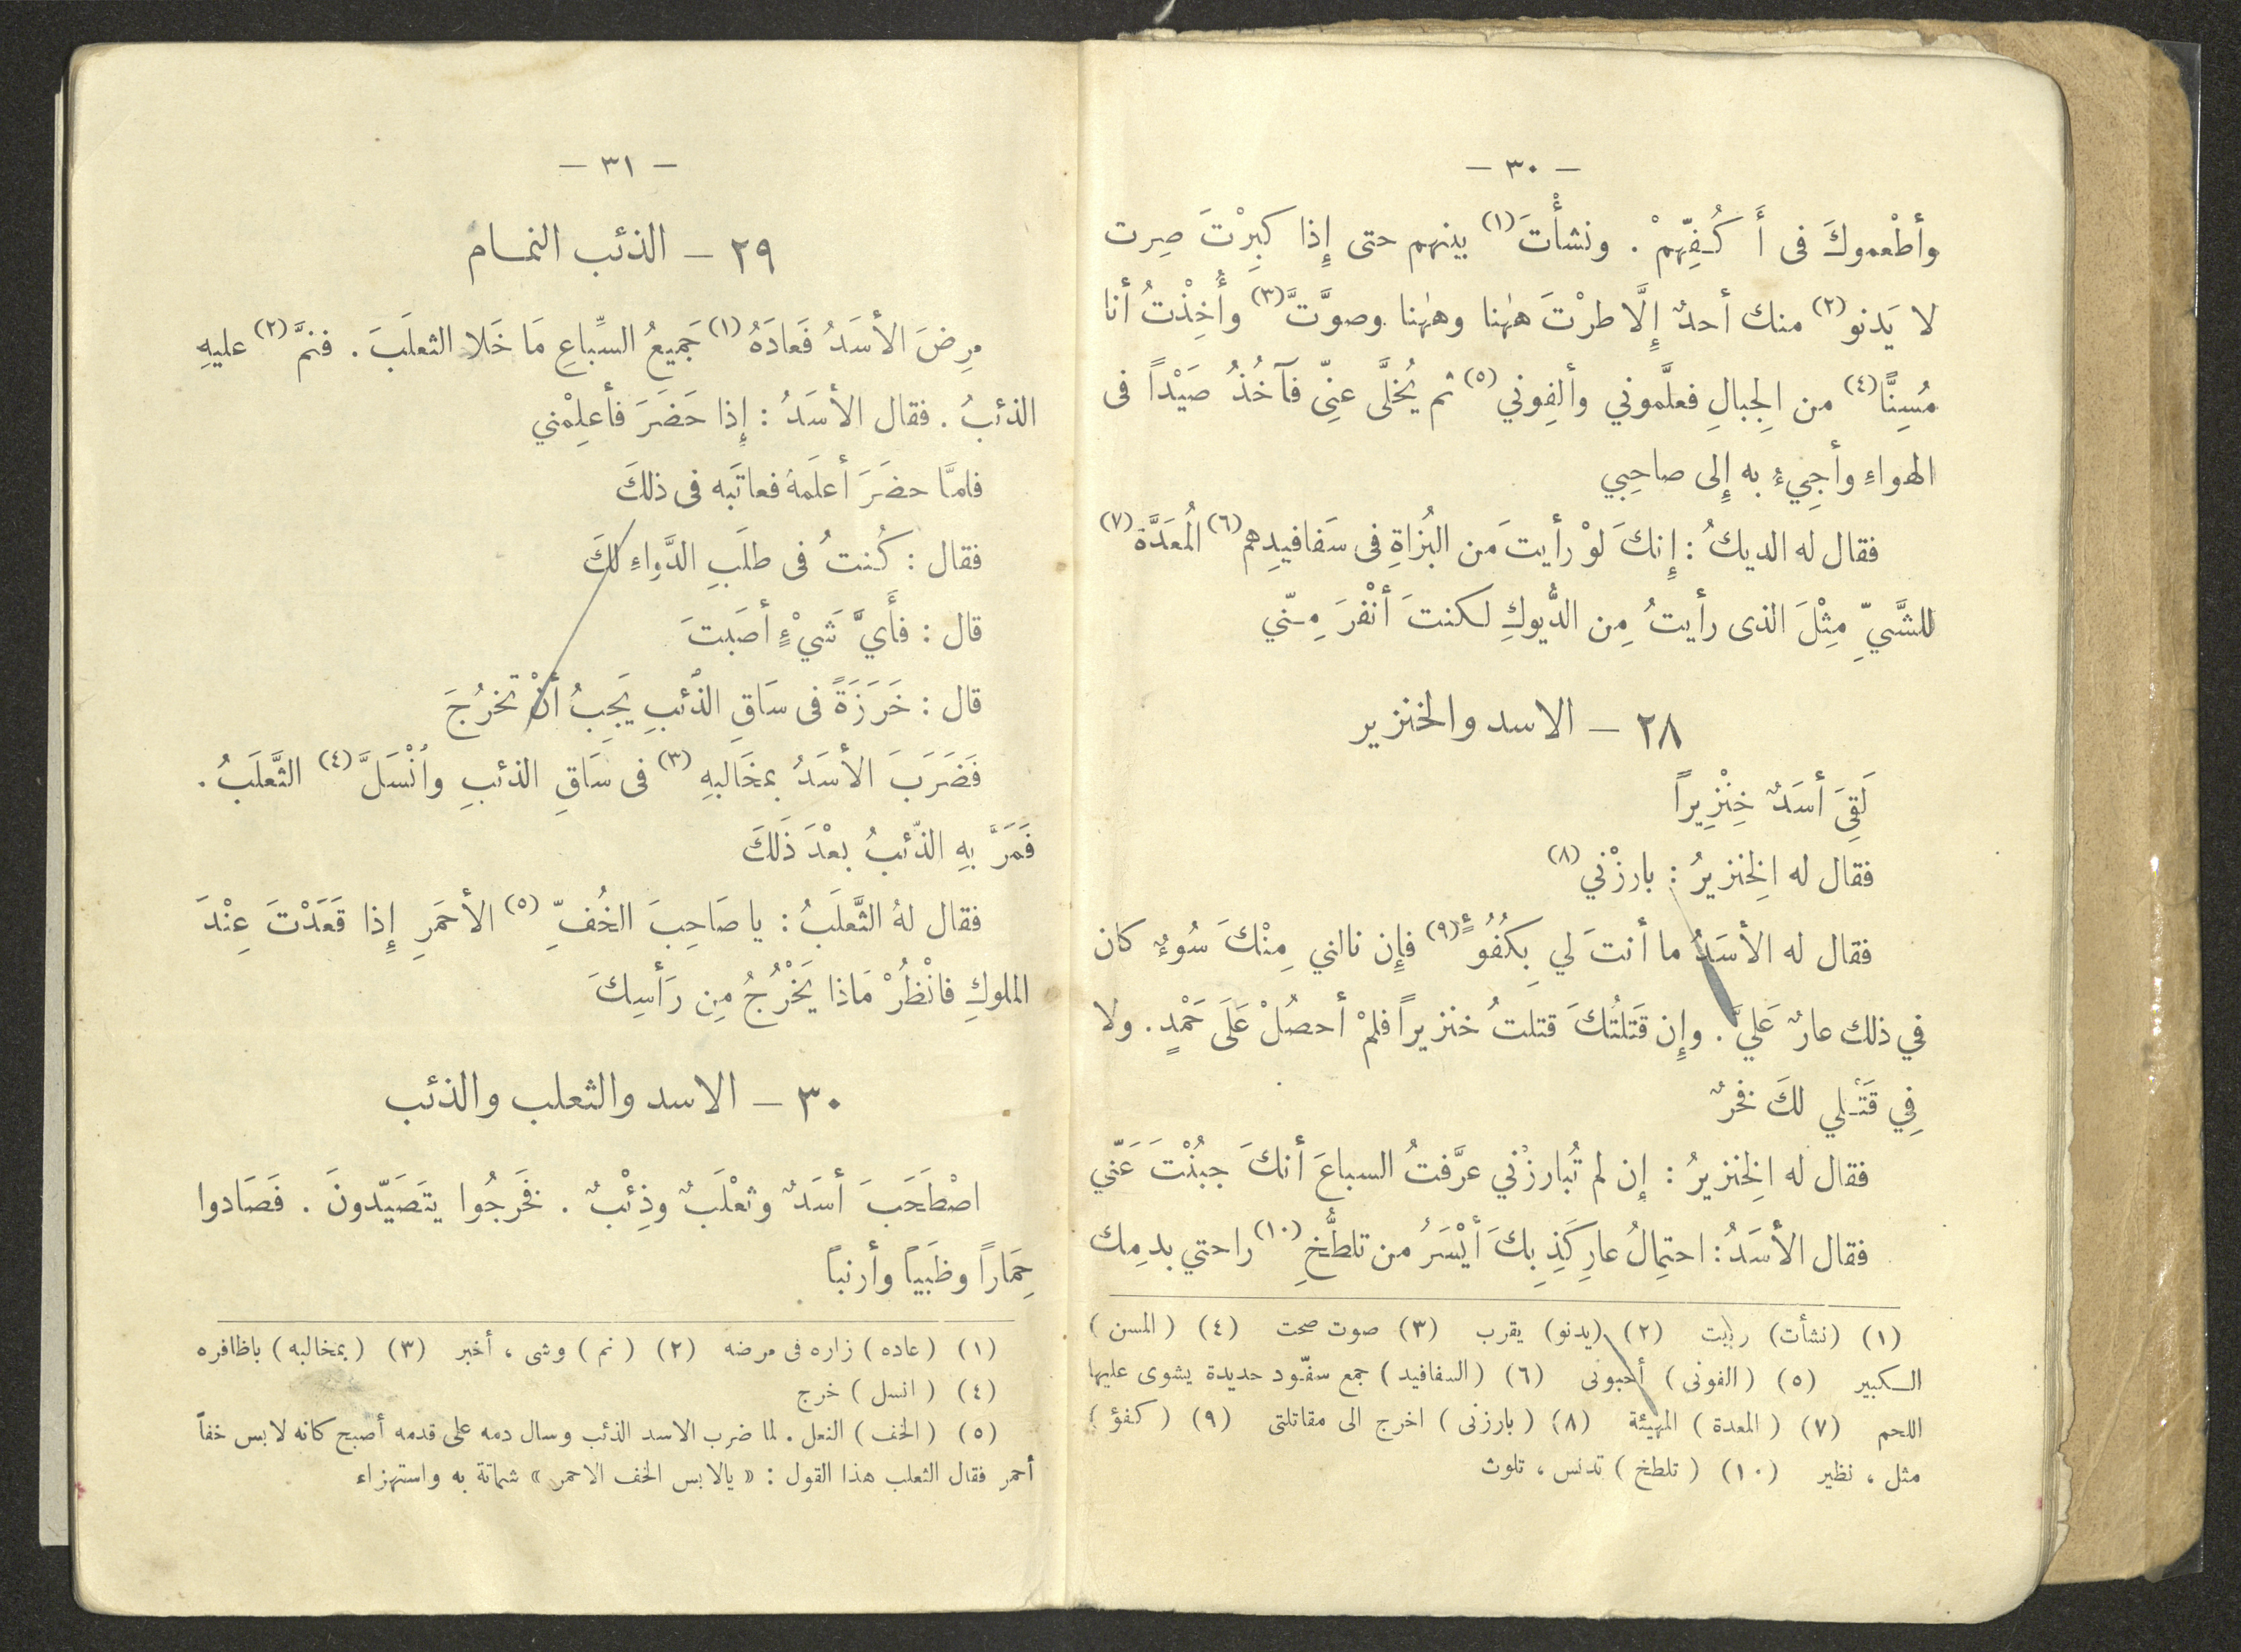 — ٣٠ —
وأطْعموكَ فى أَكُفِّهِمْ . ونشأْتَ (١) بينهم حتى إِذا كبِرْتَ صِرت
لا يَدنو (٢) منك أحدٌ إِلَّا طرْتَ هٰهنا وهٰهنا وصوَّتَّ (٣) وأُخِذْتُ أنا
مُسِنًّا (٤) من الجِبالِ فعلَّموني وألِفوني (٥) ثم يُخلَّى عنِّى فآخُذُ صَيْداً فى
الهواءِ وأجِيءُ به إِلى صاحِبي
فقال له الديكُ : إِنكَ لوْ رأيتَ من البُزاةِ فى سَفافيدِهم (٦) المُعَدَّة (٧)
للشَّيِّ مِثْلَ الذى رأيتُ مِن الدُّيوكِ لكنتَ أنْفرَ مِـنّي
٢٨ — الاسد والخنزير
لَقِيَ أسَدٌ خِنْزِيراً
فقال له الخِنزيرُ : بارزْني (٨)
فقال له الأسَدُ ما أنتَ لي بِكُفُوءٍ (٩) فإِن نالني مِنْكَ سُوءٌ كان
في ذلك عارٌ عَليَّ . وإِن قَتَلتُكَ قتلتُ خنزيراً فلمْ أحصُلْ عَلَى حَمْدٍ . ولا
فِي قَتْـلي لكَ فخرٌ
فقال له الخِنزيرُ : إن لم تُبارزْني عرَّفتُ السباعَ أنكَ جبنْتَ عَنّي
فقال الأسَدُ : احتِمالُ عارِ كَذِبِكَ أيْسَرُ من تلطُّخِ (١٠) راحتي بدمِك
(١) (نشأت) ربيت (٢) (يدنو) يقرب (٣) صوت صحت (٤) ( المسن )
الكبير (٥) ( الفونى ) أحبونى (٦) ( السفافيد ) جمع سفّود حديدة يشوى عليها
اللحم (٧) ( المعدة ) المهيئة (٨) ( بارزنى ) اخرج الى مقاتلتى (٩) ( كفؤ )
مثل ، نظير (١٠) ( تلطخ ) تدنس ، تلوث
— ٣١ —
٢٩ — الذئب النمـام
مرِضَ الأسَدُ فَعادَهُ (١) جَميعُ السِّباعِ مَا خَلا الثعلَبَ . فنمَّ (٢) عليهِ
الذئبُ . فقال الأسَدُ : إِذا حَضَرَ فأعلِمْني
فلمَّا حضَرَ أعلَمهُ فعاتَبه فى ذلكَ
فقال : كُنتُ فى طلَبِ الدَّواءِ لكَ
قال : فأَيَّ شَيْءٍ أصَبتَ
قال : خَرَزَةً فى سَاقِ الذئبِ يَجِبُ أنْ تخرُجَ
فَضَرَبَ الأسَدُ بمخَالبهِ (٣) فى سَاقِ الذئبِ وأنْسَلَّ (٤) الثَّعلَبُ .
فَمَرَّ بهِ الذّئبُ بعْدَ ذَلكَ
فقال لهُ الثَّعلَبُ : يا صَاحِبَ الخُفِّ (٥) الأحمَرِ إِذا قَعَدْتَ عِنْدَ
الملوكِ فانْظُرْ مَاذا يَخْرُجُ مِن رَأسِكَ
٣٠ — الاسد والثعلب والذئب
اصْطَحَبَ أسَدٌ وثعْلَبٌ وذِئْبٌ . فخَرجُوا يتَصَيّدونَ . فَصَادوا
حِمَاراً وظَبياً وأرنباً
(١) ( عاده ) زاره فى مرضه (٢) ( نم ) وشى ، أخبر (٣) ( بمخالبه ) باظافره
(٤) ( انسل ) خرج
(٥) ( الخف ) النعل . لما ضرب الاسد الذئب وسال دمه على قدمه أصبح كانه لابس خفاً
أحمر فقال الثعلب هذا القول : « يالابس الخف الاحمر » شماتة به واستهزاء